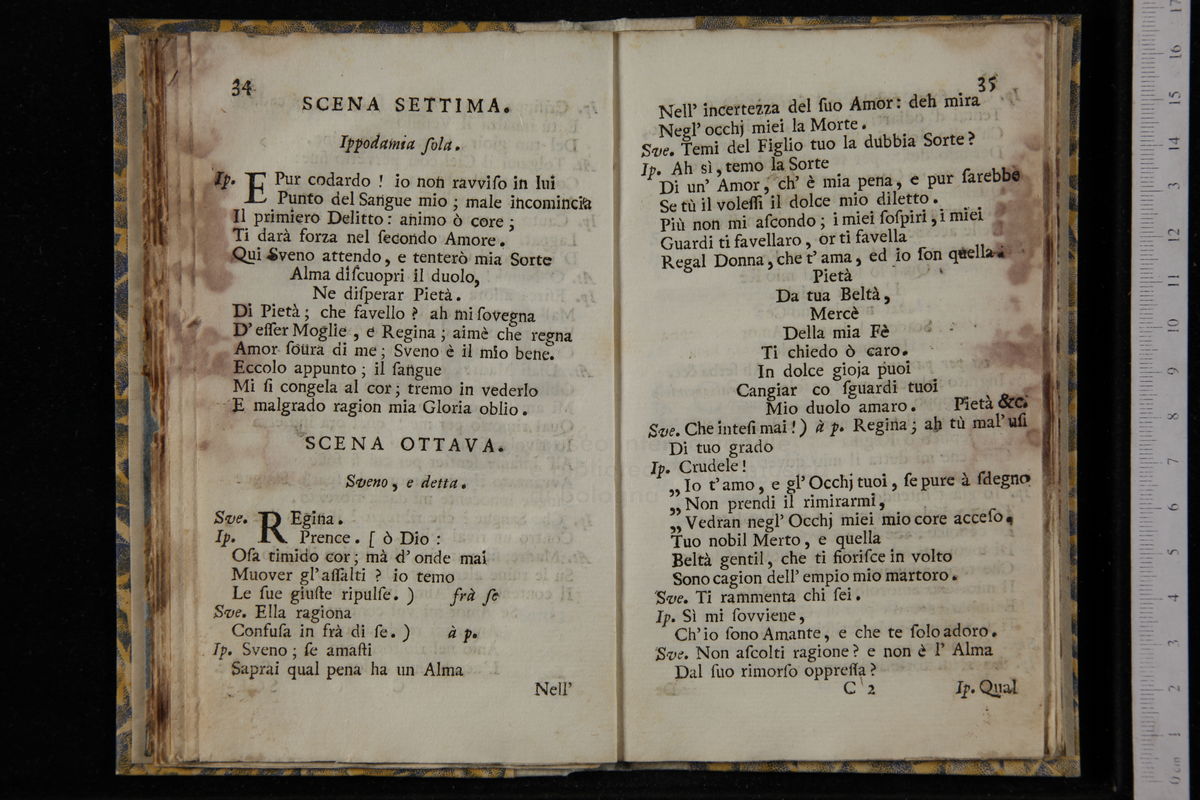 34
SCENA SETTIMA.
Ippodamia ſola.
Ip. E Pur codardo ! io non ravviſo in lui
Punto del Sangue mio ; male incomincia
Il primiero Delitto : animo ò core ;
Ti darà forza nel ſecondo Amore.
Qui Sveno attendo, e tenterò mia Sorte
Alma diſcuopri il duolo,
Ne diſperar Pietà.
Di Pietà ; che favello ? ah mi ſovegna
D'eſſer Moglie, e Regina ; aimè che regna
Amor ſoura di me ; Sveno è il mio bene.
Eccolo appunto ; il ſangue
Mi ſi congela al cor ; tremo in vederlo
E malgrado ragion mia Gloria oblio.
SCENA OTTAVA.
Sveno, e detta.
Sve. REgina.
Ip. Prence. [ ò Dio :
Oſa timido cor ; mà d'onde mai
Muover gl'aſſalti ? io temo
Le ſue giuſte ripulſe. ) frà ſe
Sve. Ella ragiona
Confuſa in frà di ſe. ) à p.
Ip. Sveno ; ſe amaſti
Saprai qual pena ha un Alma
Nell'
35
Nell' incertezza del ſuo Amor : deh mira
Negl'occhj miei la Morte.
Sve. Temi del Figlio tuo la dubbia Sorte ?
Ip. Ah sì, temo la Sorte
Di un' Amor, ch' è mia pena, e pur ſarebbe
Se tù il voleſſi il dolce mio diletto.
Più non mi aſcondo ; i miei ſoſpiri, i miei
Guardi ti favellaro, or ti favella
Regal Donna, che t'ama, ed io ſon quella.
Pietà
Da tua Beltà,
Mercè
Della mia Fè
Ti chiedo ò caro.
In dolce gioja puoi
Cangiar co ſguardi tuoi
Mio duolo amaro. Pietà &c.
Sve. Che inteſi mai ! ) à p. Regina ; ah tù mal' uſi
Di tuo grado
Ip. Crudele !
„ Io t'amo, e gl'Occhj tuoi, ſe pure à ſdegno
„ Non prendi il rimirarmi,
„ Vedran negl'Occhj miei mio core acceſo.
Tuo nobil Merto, e quella
Beltà gentil, che ti fioriſce in volto
Sono cagion dell'empio mio martoro.
Sve. Ti rammenta chi ſei.
Ip. Sì mi ſovviene,
Ch'io ſono Amante, e che te ſolo adoro.
Sve. Non aſcolti ragione ? e non è l' Alma
Dal ſuo rimorſo oppreſſa ?
C 2 Ip. Qual